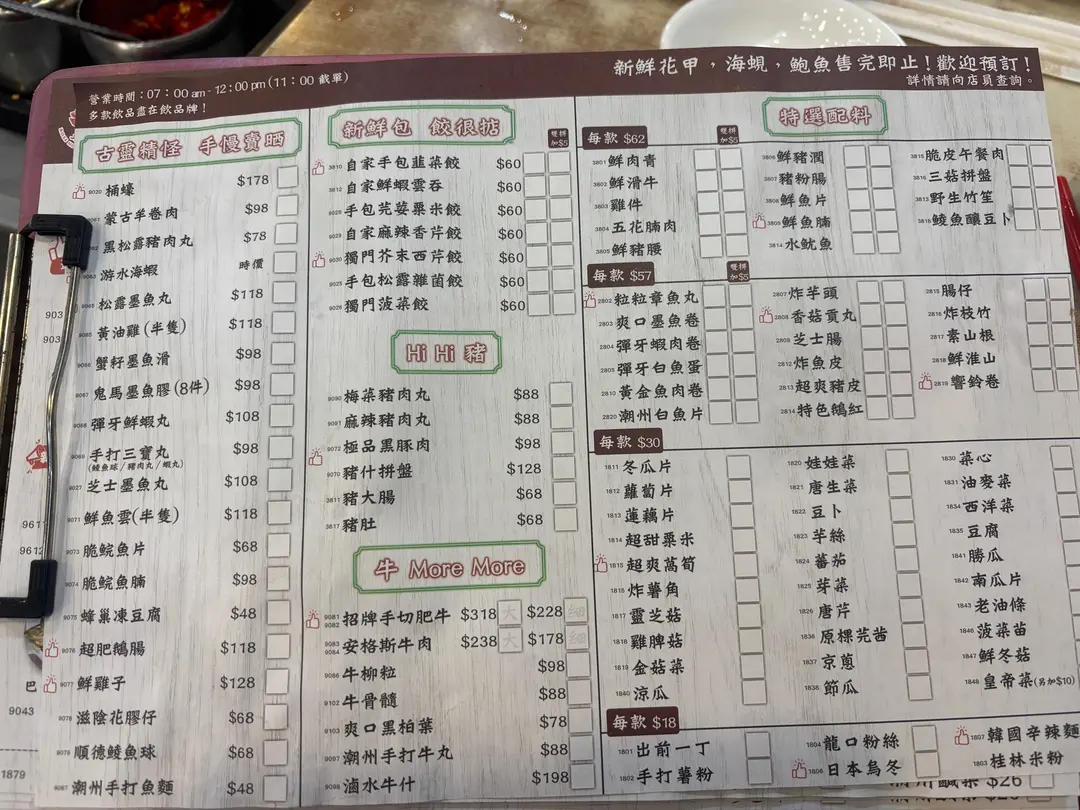 營業時間：07：00 am - 12：00 pm (11：00 截單)
多款飲品盡在飲品牌！
新鮮花甲，海蜆，鮑魚售完即止！歡迎預訂！
詳情請向店員查詢。
古靈精怪 手慢賣晒
9020 桶蠔 $178
蒙古羊卷肉 $98
黑松露豬肉丸 $78
游水海蝦 時價
松露墨魚丸 $118
黃油雞 (半隻) $118
蟹籽墨魚滑 $98
鬼馬墨魚膠 (8件) $98
彈牙鮮蝦丸 $108
手打三寶丸 $98
(鯪魚球/豬肉丸/蝦丸)
9027 芝士墨魚丸 $108
9071 鮮魚雲(半隻) $118
9073 脆鯇魚片 $68
9074 脆鯇魚腩 $98
9075 蜂巢凍豆腐 $48
9076 超肥鵝腸 $118
9077 鮮雞子 $128
9078 滋陰花膠仔 $68
9079 順德鯪魚球 $68
潮州手打魚麵 $48
新鮮包 餃很掂
雙拼
加$5
3810 自家手包韮菜餃 $60
3812 自家鮮蝦雲吞 $60
手包芫荽粟米餃 $60
自家麻辣香芹餃 $60
9030 獨門芥末西芹餃 $60
手包松露雜菌餃 $60
獨門菠菜餃 $60
Hi Hi 豬
9090 梅菜豬肉丸 $88
9091 麻辣豬肉丸 $88
9072 極品黑豚肉 $98
9070 豬什拼盤 $128
3811 豬大腸 $68
3817 豬肚 $68
牛 More More
9081
9082 招牌手切肥牛 $318 大 $228 細
9083
9084 安格斯牛肉 $238 大 $178 細
9086 牛柳粒 $98
9102 牛骨髓 $88
9103 爽口黑柏葉 $78
9097 潮州手打牛丸 $88
9098 滷水牛什 $198
特選配料
每款 $62
雙拼
加$5
3801 鮮肉青
3802 鮮滑牛
3803 雞件
3804 五花腩肉
3805 鮮豬腰
3806 鮮豬潤
豬粉腸
鮮魚片
鮮魚腩
3814 水魷魚
3815 脆皮午餐肉
3816 三菇拼盤
3813 野生竹笙
鯪魚釀豆卜
每款 $57
雙拼
加$5
2802 粒粒章魚丸
2803 爽口墨魚卷
2804 彈牙蝦肉卷
2805 彈牙白魚蛋
2810 黃金魚肉卷
2820 潮州白魚片
2807 炸芋頭
2808 香菇貢丸
2809 芝士腸
2812 炸魚皮
2813 超爽豬皮
2814 特色鵝紅
2815 腸仔
2816 炸枝竹
2817 素山根
2818 鮮淮山
2819 響鈴卷
每款 $30
1811 冬瓜片
1812 蘿蔔片
1813 蓮藕片
1814 超甜粟米
1815 超爽萵筍
炸薯角
1817 靈芝菇
1818 雞脾菇
1819 金菇菜
1840 涼瓜
1820 娃娃菜
1821 唐生菜
1822 豆卜
1823 芋絲
1824 番茄
1825 芽菜
1826 唐芹
1836 原棵芫茜
1837 京蔥
1838 節瓜
1830 菜心
1831 油麥菜
1834 西洋菜
1835 豆腐
1841 勝瓜
1842 南瓜片
1843 老油條
1846 菠菜苗
1847 鮮冬菇
1848 皇帝菜(另加$10)
每款 $18
1801 出前一丁
1802 手打薯粉
1804 龍口粉絲
1806 日本烏冬
1807 韓國辛辣麵
1803 桂林米粉
903
903
961
9612
巴
9043
1879
$26